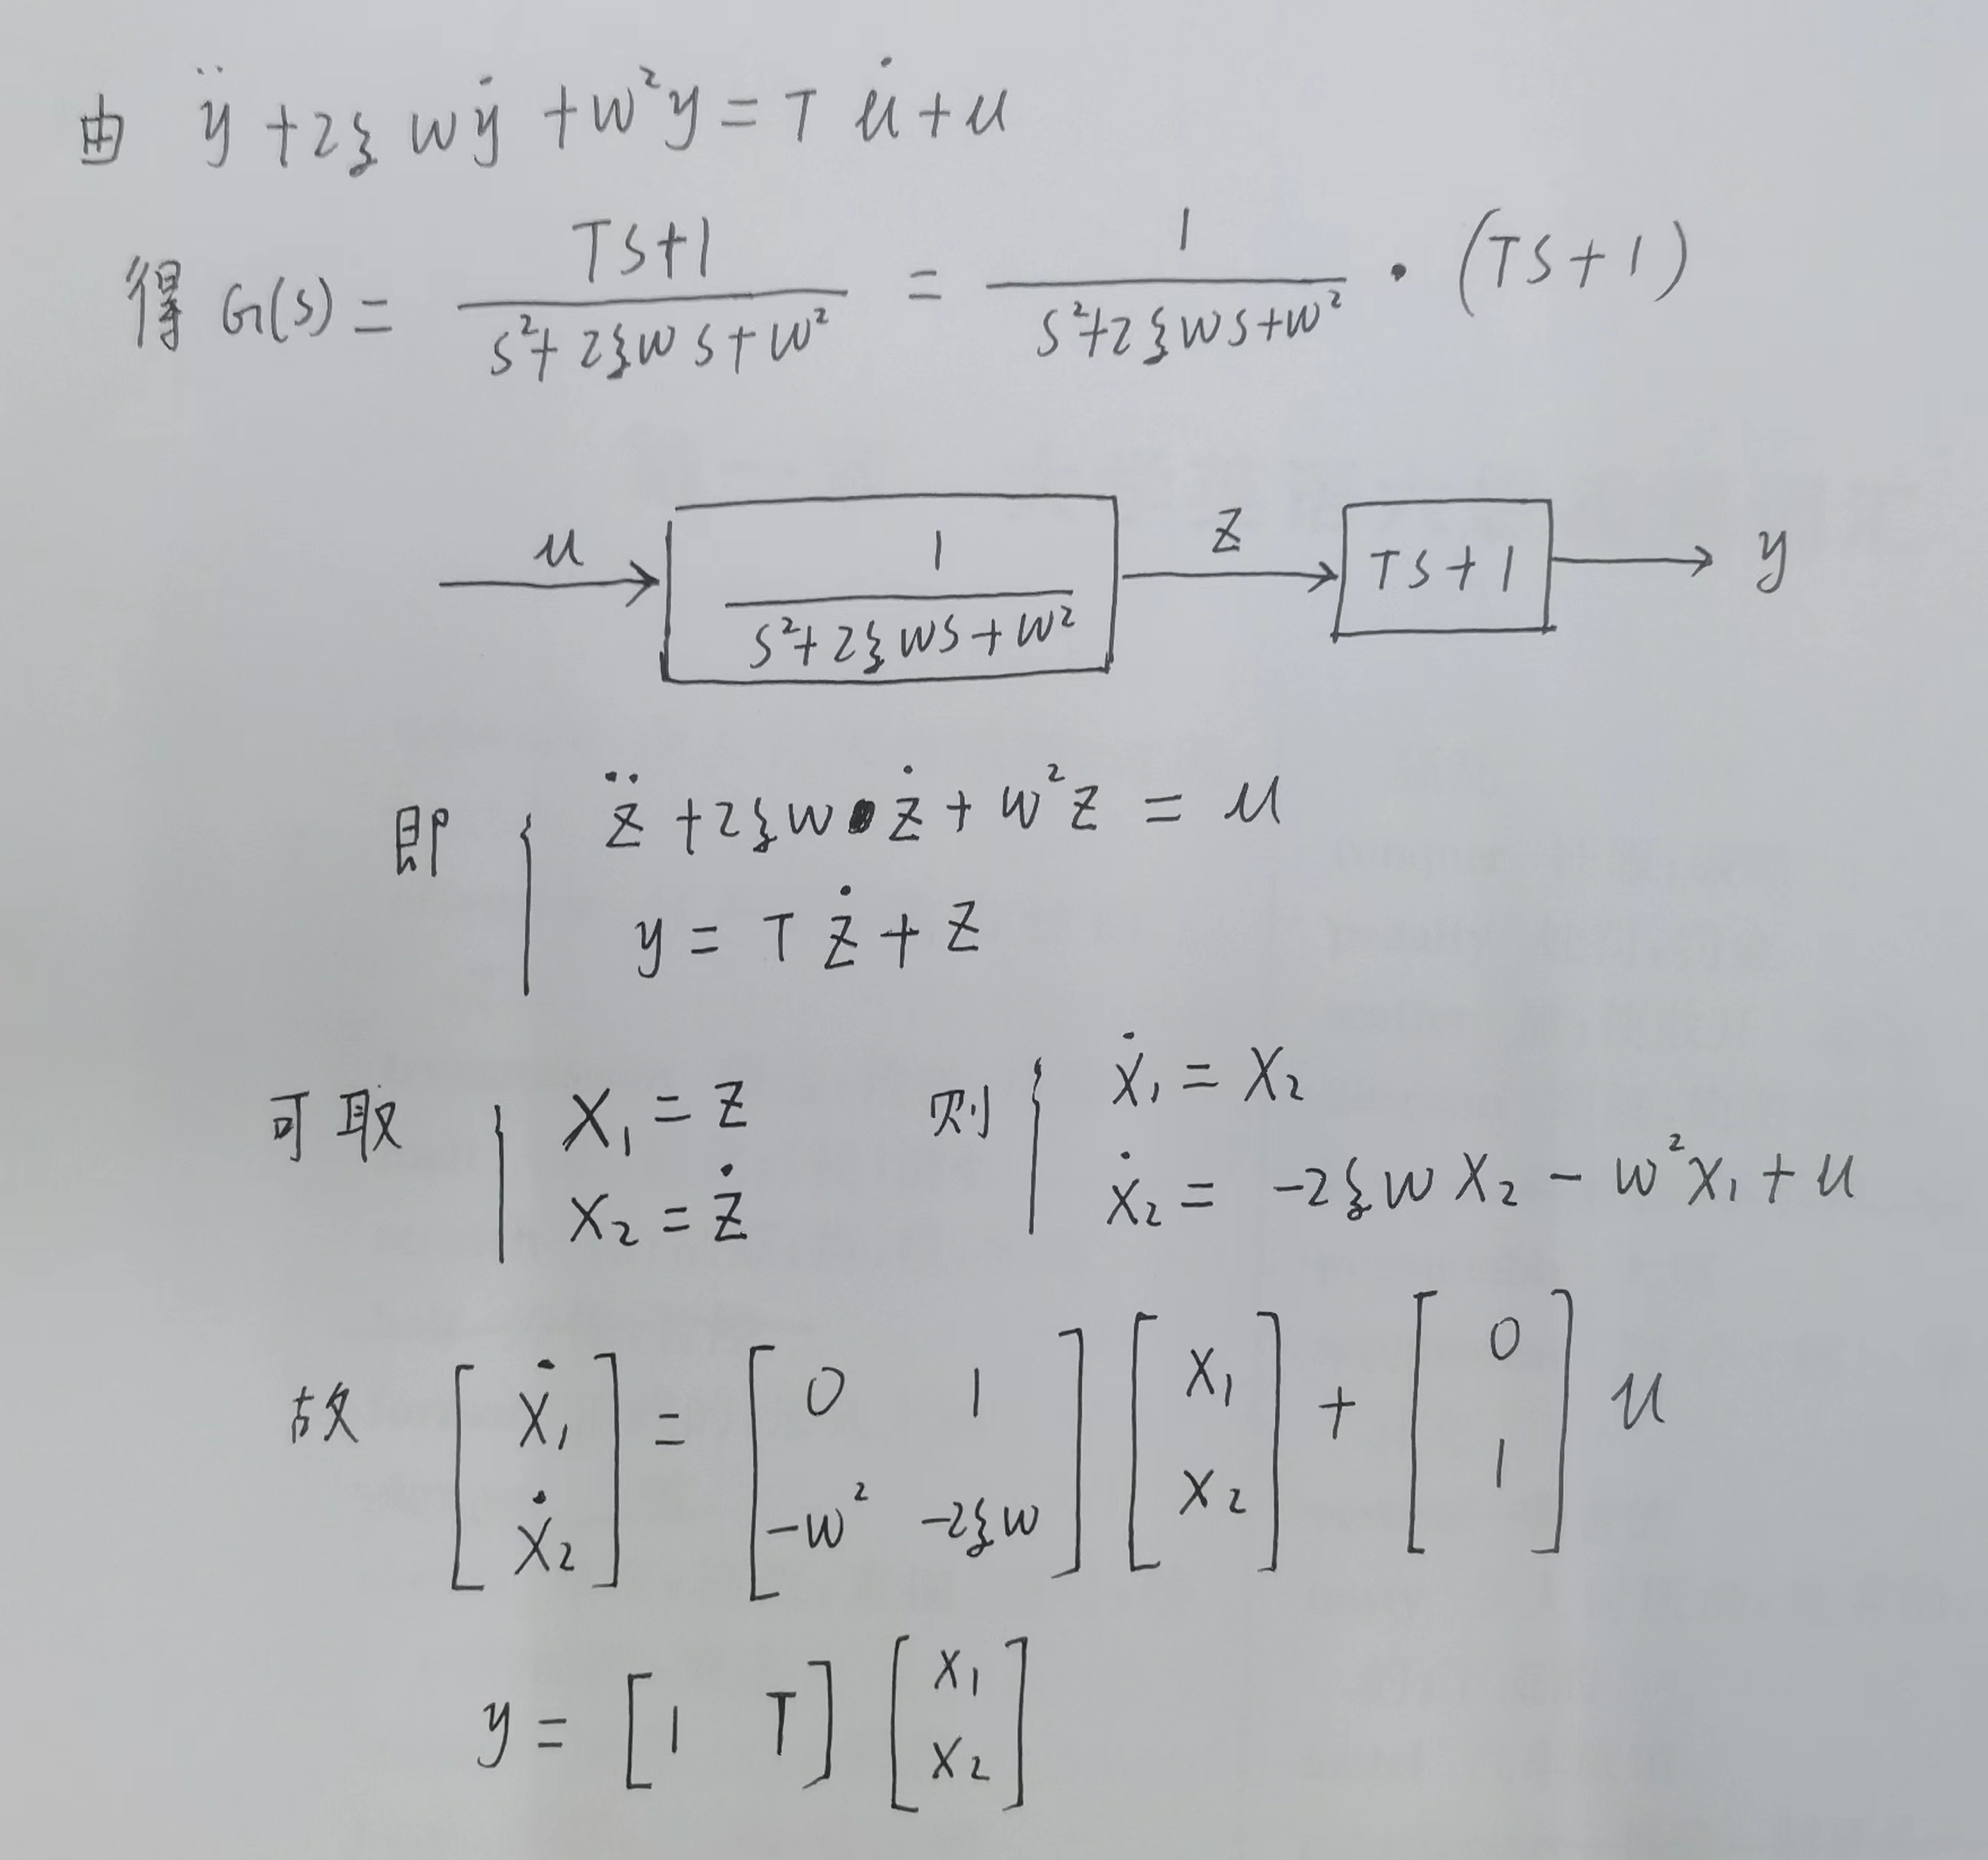 由 ÿ + 2ξwẏ + w²y = T u̇ + u
得 G(s) = (TS+1)/(s²+2ξws+w²) = 1/(s²+2ξws+w²) · (TS+1)
u → [1/(s²+2ξws+w²)] → z → [TS+1] → y
即 { z̈ + 2ξwż + w²z = u
y = Tż + z
可取 { x₁ = z 则 { ẋ₁ = x₂
x₂ = ż ẋ₂ = -2ξwx₂ - w²x₁ + u
故 [ẋ₁; ẋ₂] = [0 1; -w² -2ξw] [x₁; x₂] + [0; 1] u
y = [1 T] [x₁; x₂]